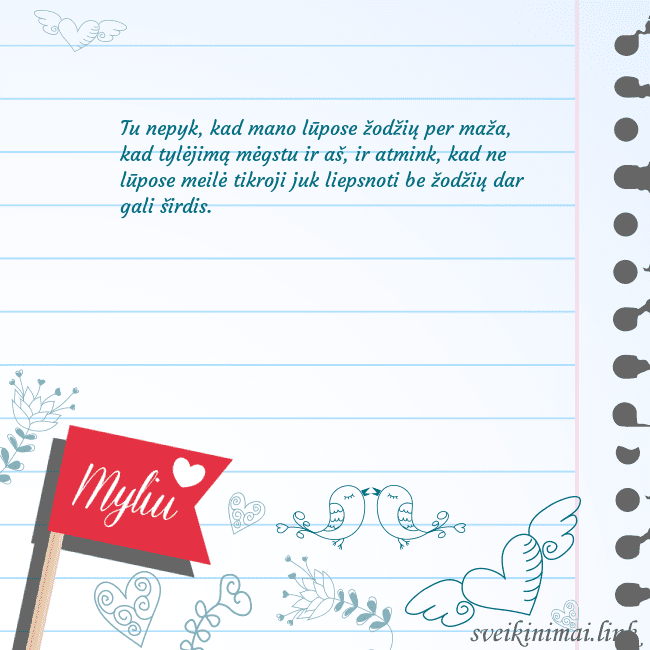 Tu nepyk, kad mano lūpose žodžių per maža,
kad tylėjimą mėgstu ir aš, ir atmink, kad ne
lūpose meilė tikroji juk liepsnoti be žodžių dar
gali širdis.
Myliu
sveikinimai.link